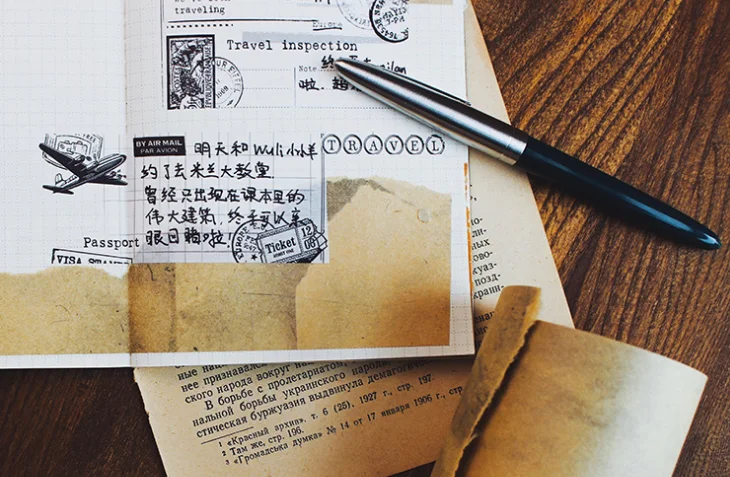 traveling
Europe
Travel inspection
Note
啦.
BY AIR MAIL
PAR AVION
明天和Wuli小羊
TRAVEL
约了去米兰大教堂
曾经只出现在课本里的
伟大建筑,终于可以亲
眼目睹啦!
Ticket
Passport
VISA STAMPS
нее признавался
ского народа вокруг
В борьбе с пролетариатом,
нальной борьбы украинского народа,
стическая буржуазия выдвинула демагогический
1 «Красный архив», т. 6 (25), 1927 г., стр. 197.
2 Там же, стр. 196.
3 «Громадська думка» № 14 от 17 января 1906 г., стр.